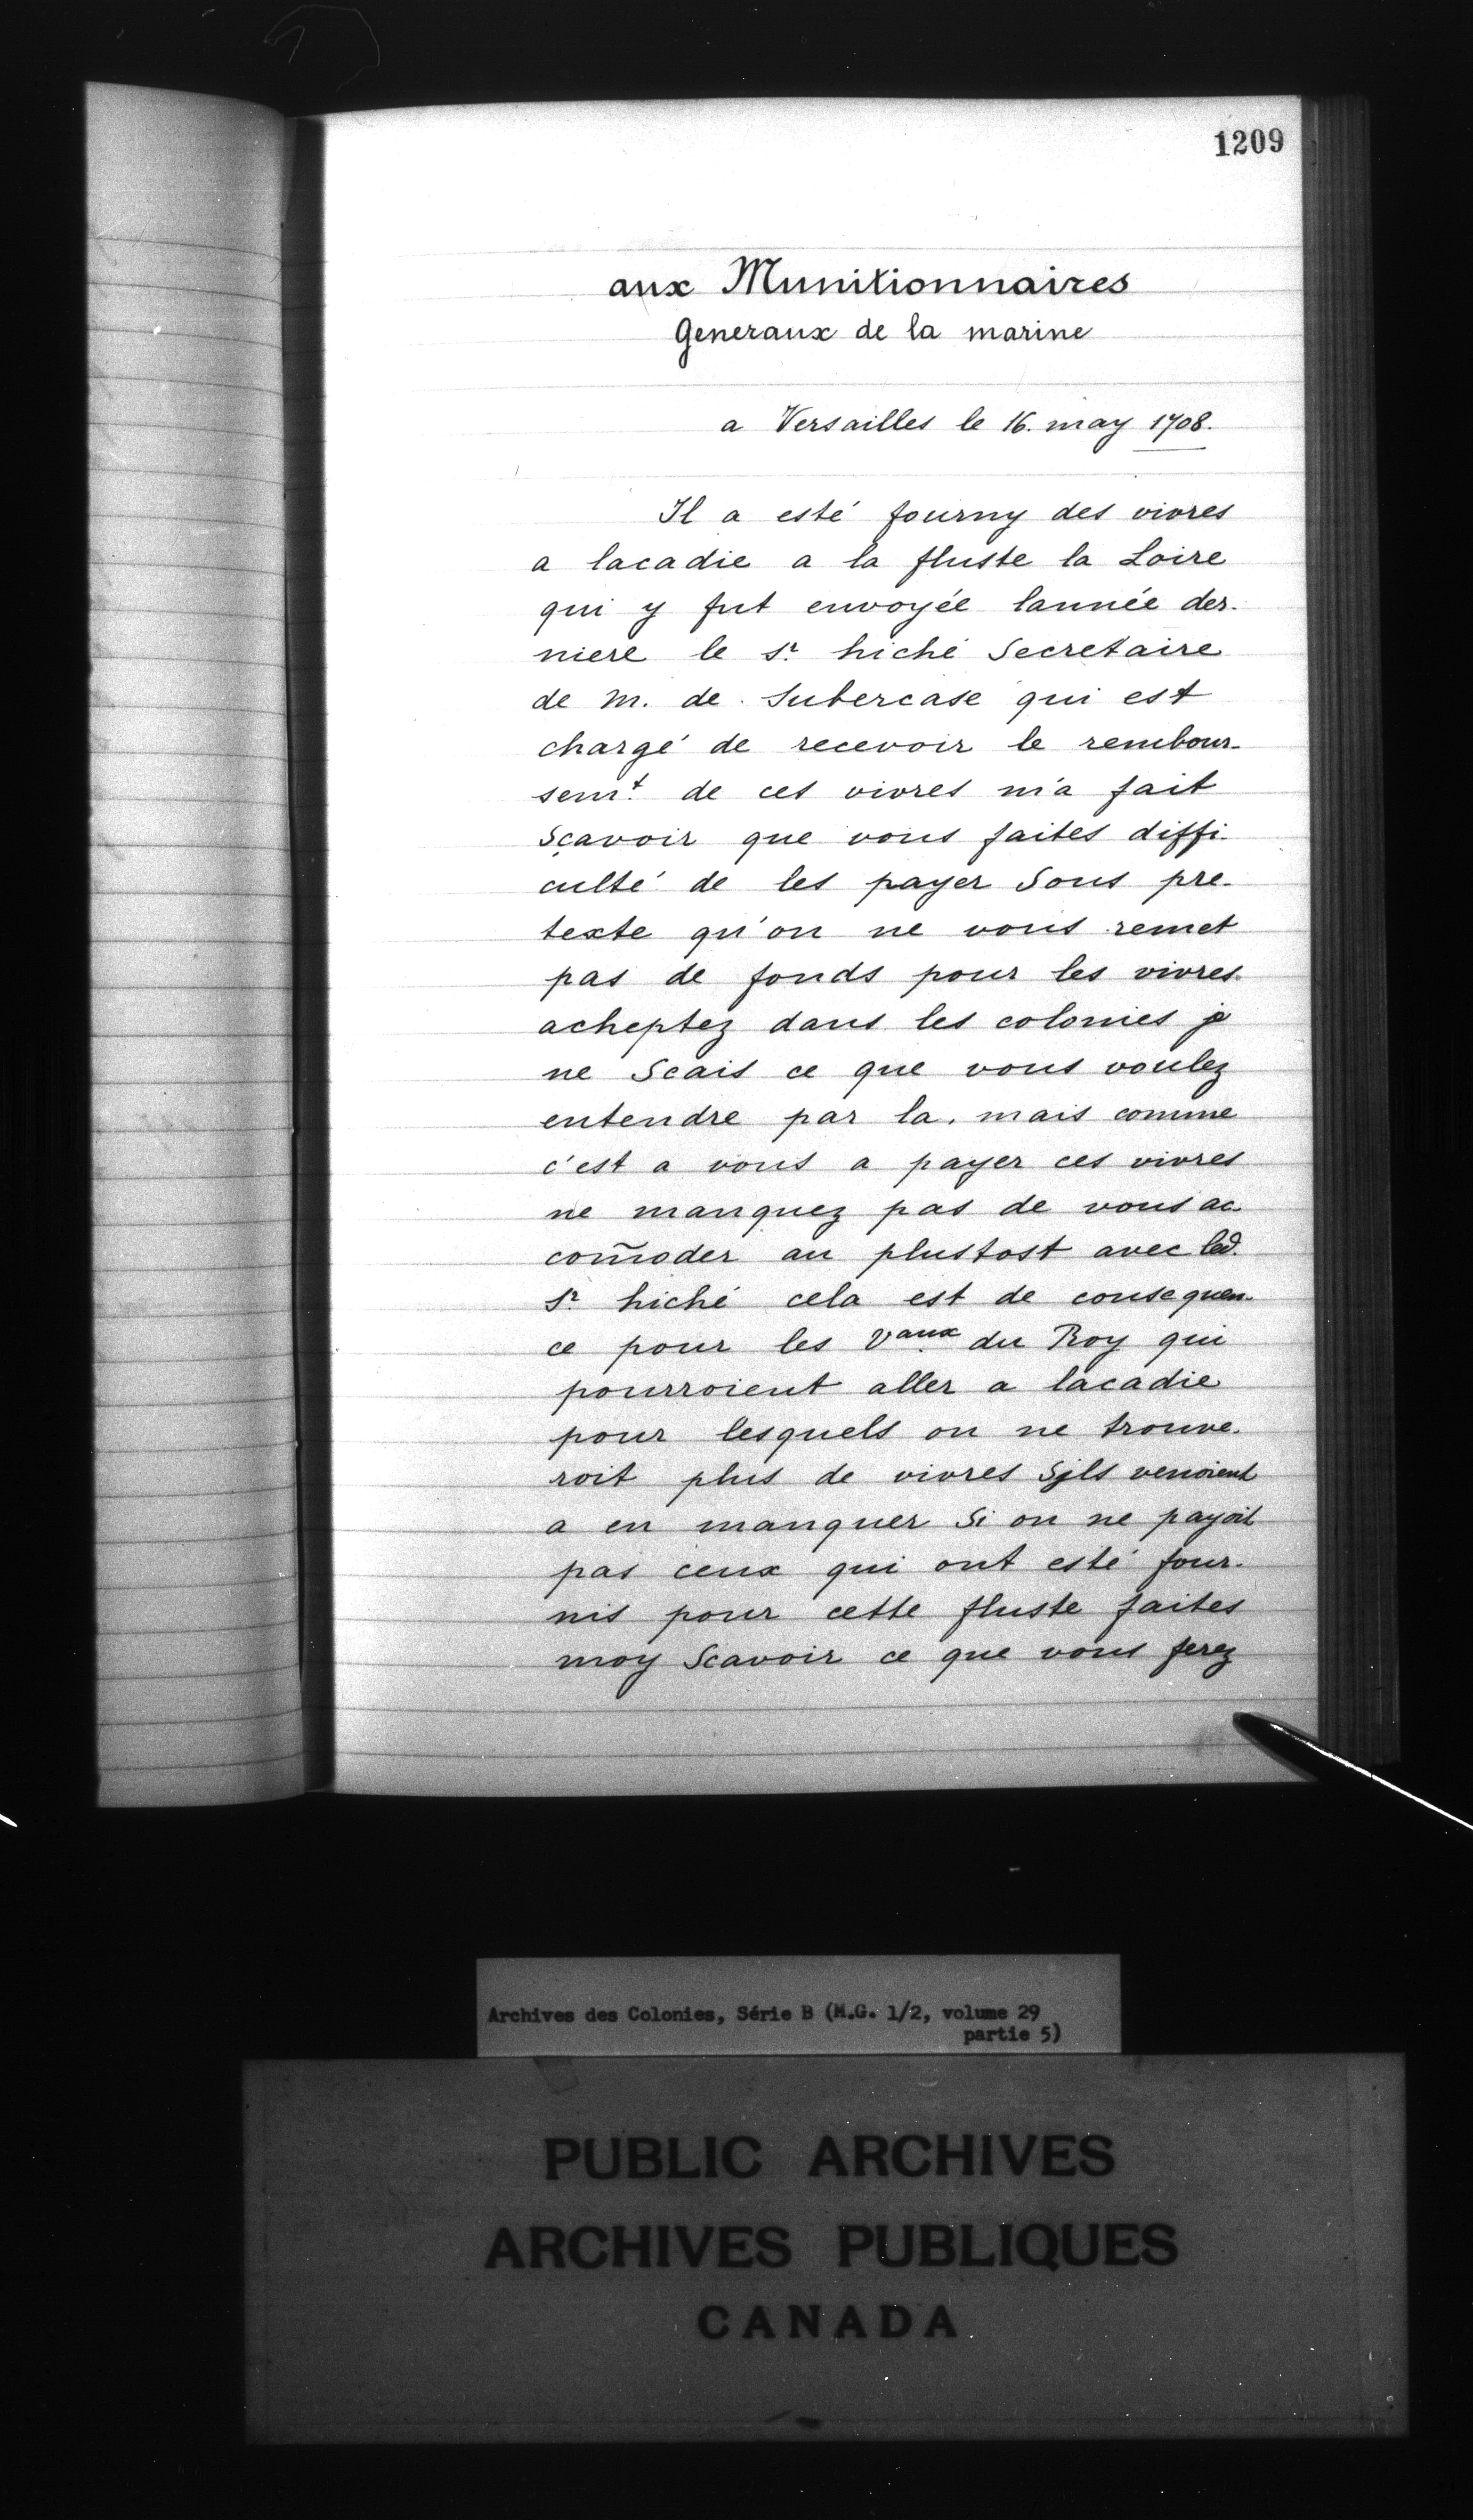 1209
aux Munitionnaires
Generaux de la marine
a Versailles le 16. may 1708.
Il a esté fourny des vivres
a lacadie a la fluste la Loire
qui y fut envoyée lannée der-
niere le Sr. hiché Secretaire
de M. de Subercase qui est
chargé de recevoir le rembour-
semt. de ces vivres m'a fait
Sçavoir que vous faites diffi-
culté de les payer Sous pre-
texte qu'on ne vous remet
pas de fonds pour les vivres
acheptez dans les colonies je
ne Scais ce que vous voulez
entendre par la. mais comme
c'est a vous a payer ces vivres
ne manquez pas de vous ac-
com̃oder au plustost avec led.
Sr. hiché cela est de consequen-
ce pour les Vaux du Roy qui
pourroient aller a lacadie
pour lesquels on ne trouve-
roit plus de vivres Sjls venoient
a en manquer Si on ne payoit
pas ceux qui ont esté four-
nis pour cette fluste faites
moy Scavoir ce que vous ferez
Archives des Colonies, Série B (M.G. 1/2, volume 29
partie 5)
PUBLIC ARCHIVES
ARCHIVES PUBLIQUES
CANADA